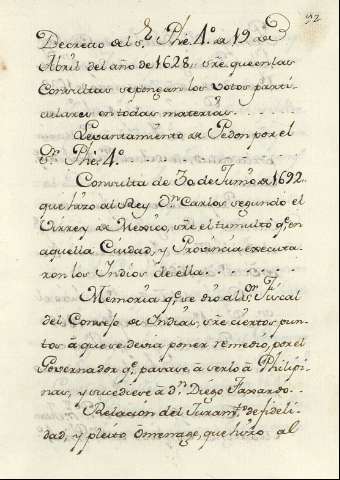 92
Decreto del S.r Phe. 4.º de 19 de
Abril del año de 1628, sre. que en las
Consultas se pongan los Votos parti-
culares en todas materias.
Levantamiento de Pedon por el
S.r Phe. 4.º
Consulta de 30 de Junio de 1692
que hizo al Rey D.n Carlos segundo el
Virrey de Mexico, sre. el tumulto q.e en
aquella Ciudad, y Provincia executa-
ron los Indios de ella.
Memoria q.e se dio al S.or Fiscal
del Consejo de Indias, sre. ciertos pun-
tos à que se devia poner remedio, por el
Governador q.e pasava à serlo à Philipi-
nas, y sucediese à D.n Diego Faxardo.
Relacion del Juram.to de fideli-
dad, y pleito omenage, que hizo al